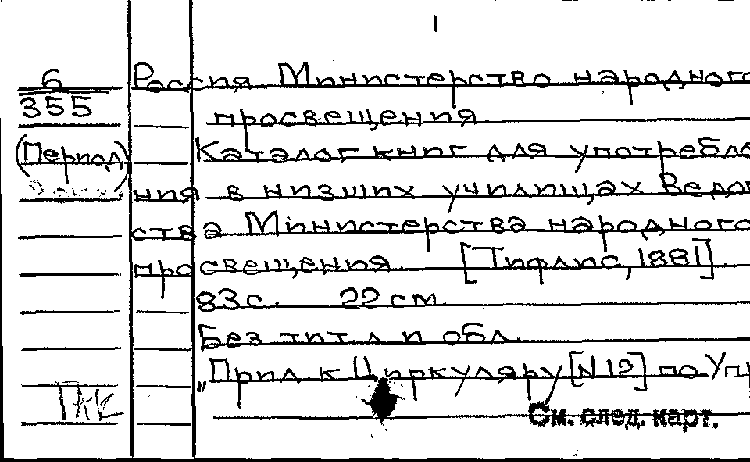 6
355
(Период)
Россия Министерство народного
просвещения
Каталог книг для употребле
ния в низших училищах Ведом
ства Министерства народного
просвещения [Тифлис, 1881].
83 с. 22 см
Без тит. л и обл.
"Прил к Циркуляру [N 12] по Упр
ГКК
См. след. карт.